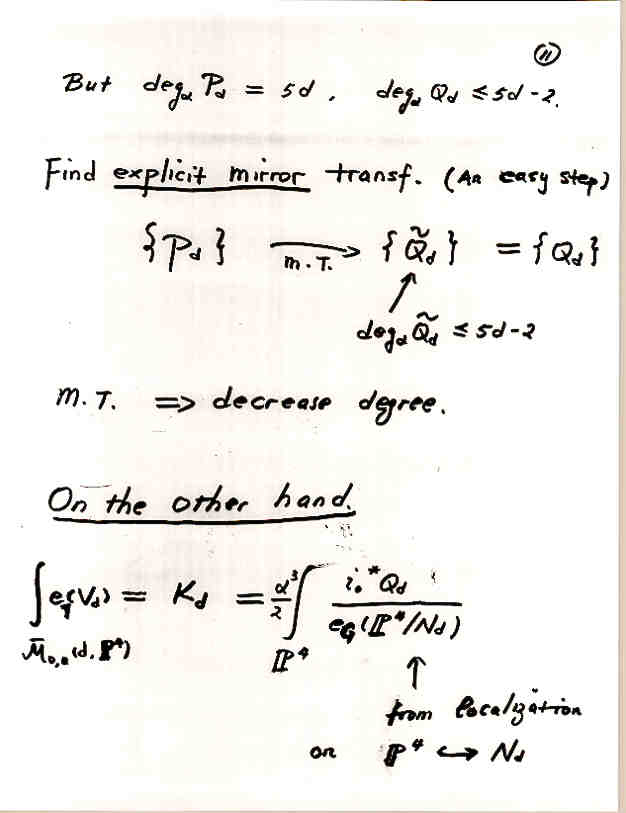 11
But deg_α P_d = 5d, deg_α Q_d ≤ 5d-2.
Find explicit mirror transf. (An easy step)
{P_d} →(m.T.) {Q̃_d} = {Q_d}
↑
deg_α Q̃_d ≤ 5d-2
m.T. => decrease degree.
On the other hand.
∫_{M̄_{0,0}(d, ℙ⁴)} e_T(V_d) = K_d = α³/2 ∫_{ℙ⁴} i_0^* Q_d / e_G(ℙ⁴/N_d)
↑
from localization
on ℙ⁴ ↪ N_d